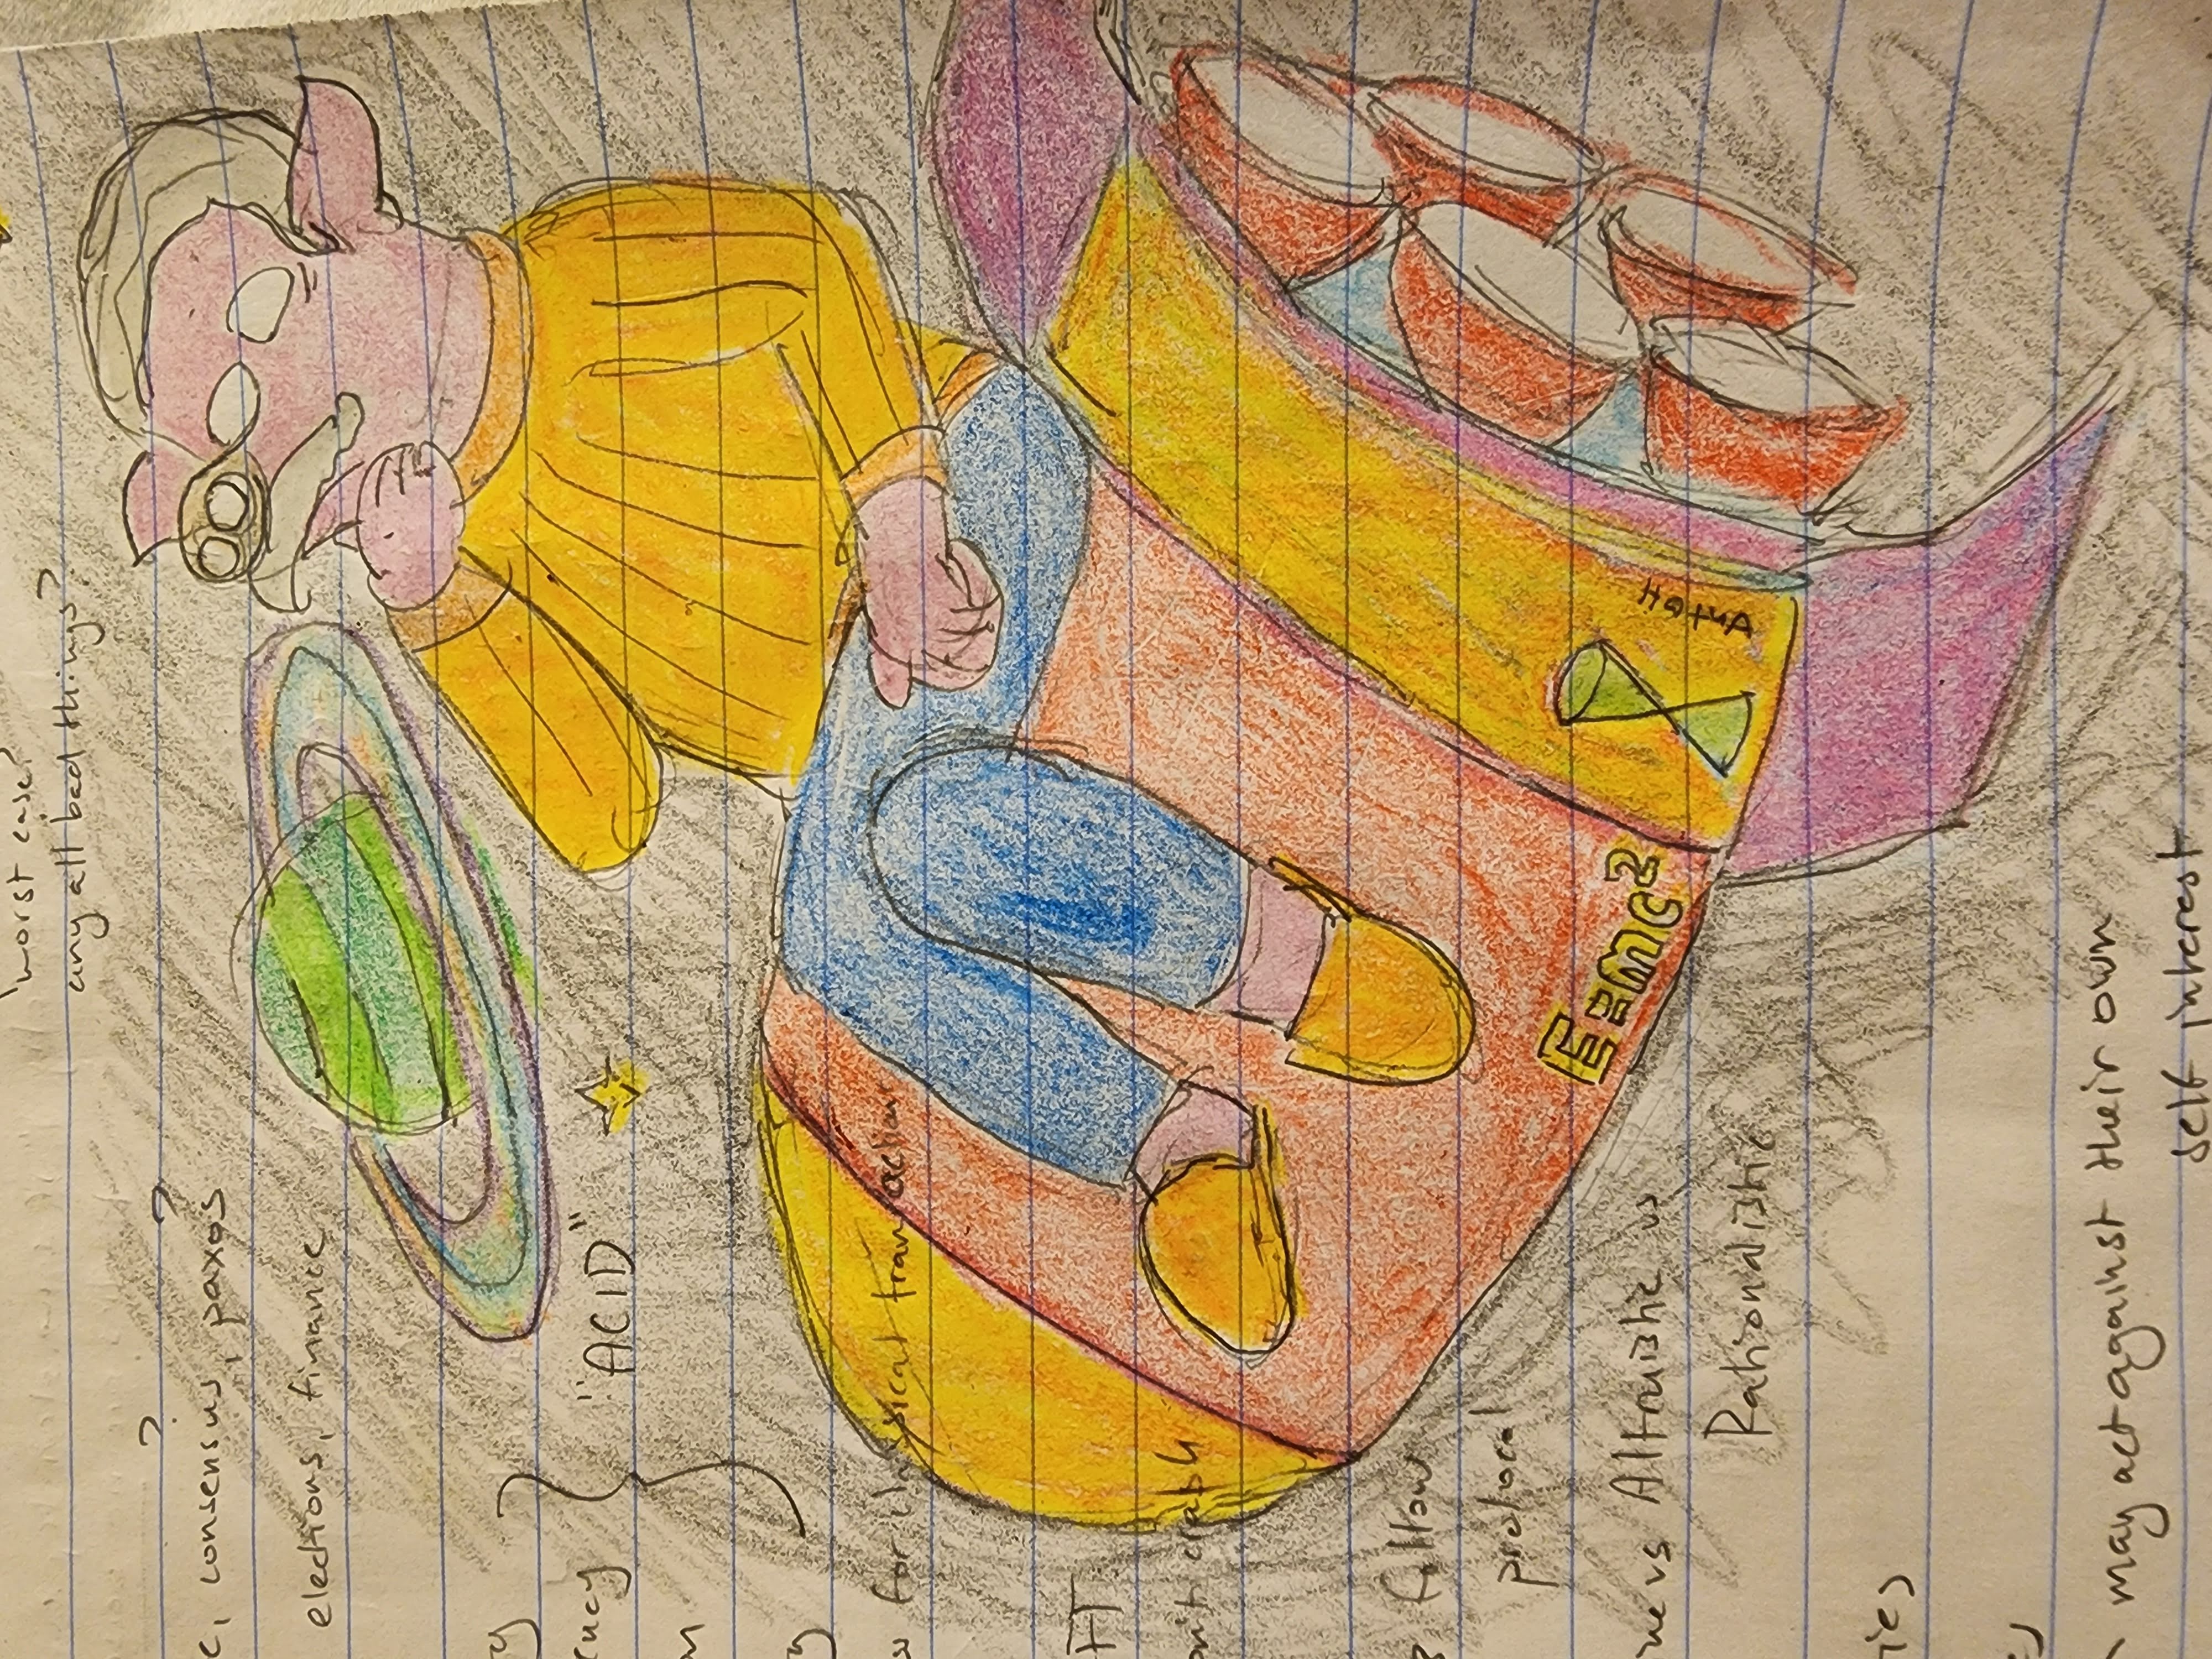 worst case?
any all bad things?
? ?
consensus, paxos
elections, finance
"ACID"
for classical transactions
FT
crash
follow
protocol
vs Altruistic vs
E=mc²
Rationalistic
may act against their own
self interest